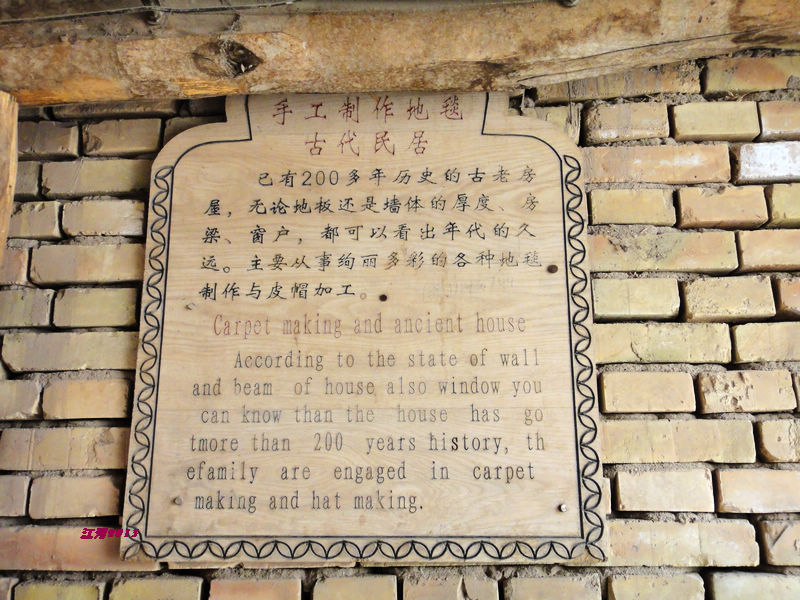 手工制作地毯
古代民居
已有200多年历史的古老房
屋，无论地板还是墙体的厚度、房
梁、窗户，都可以看出年代的久
远。主要从事绚丽多彩的各种地毯
制作与皮帽加工。
Carpet making and ancient house
According to the state of wall
and beam of house also window you
can know than the house has go
tmore than 200 years history, th
efamily are engaged in carpet
making and hat making.